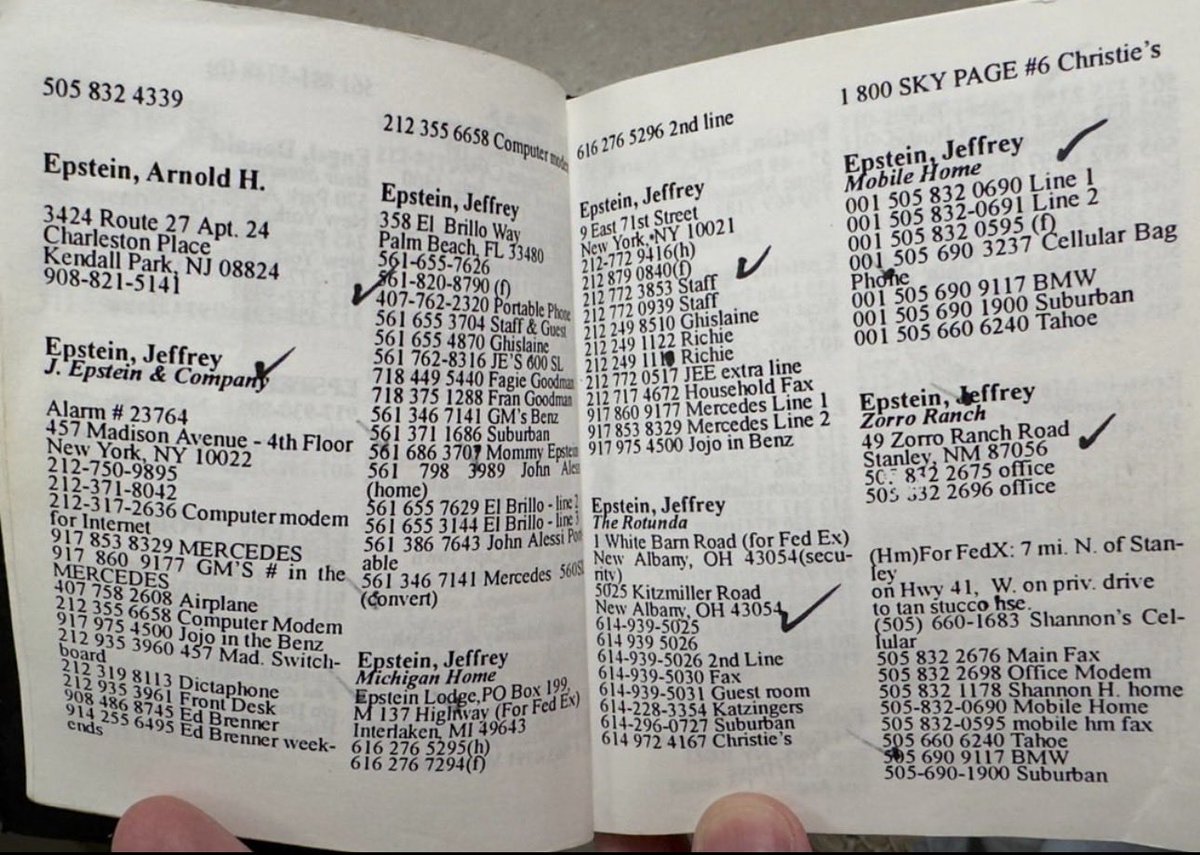 505 832 4339
Epstein, Arnold H.
3424 Route 27 Apt. 24
Charleston Place
Kendall Park, NJ 08824
908-821-5141
Epstein, Jeffrey
J. Epstein & Company
Alarm # 23764
457 Madison Avenue - 4th Floor
New York, NY 10022
212-750-9895
212-371-8042
212-317-2636 Computer modem
for Internet
917 853 8329 MERCEDES
917 860 9177 GM'S # in the
MERCEDES
407 758 2608 Airplane
212 355 6658 Computer Modem
917 975 4500 Jojo in the Benz
212 935 3960 457 Mad. Switch-
board
212 319 8113 Dictaphone
212 935 3961 Front Desk
908 486 8745 Ed Brenner
914 255 6495 Ed Brenner week-
ends
212 355 6658 Computer mode
Epstein, Jeffrey
358 El Brillo Way
Palm Beach, FL 33480
561-655-7626
561-820-8790 (f)
407-762-2320 Portable Phone
561 655 3704 Staff & Guest
561 655 4870 Ghislaine
561 762-8316 JE'S 600 SL
718 449 5440 Fagie Goodman
718 375 1288 Fran Goodman
561 346 7141 GM's Benz
561 371 1686 Suburban
561 686 3707 Mommy Epstein
561 798 3989 John Aless
(home)
561 655 7629 El Brillo - line 2
561 655 3144 El Brillo - line 3
561 386 7643 John Alessi Port
able
561 346 7141 Mercedes 560S
(convert)
Epstein, Jeffrey
Michigan Home
Epstein Lodge,PO Box 199,
M 137 Highway (For Fed Ex)
Interlaken, MI 49643
616 276 5295(h)
616 276 7294(f)
616 276 5296 2nd line
Epstein, Jeffrey
9 East 71st Street
New York, NY 10021
212-772 9416(h)
212 879 0840(f)
212 772 3853 Staff
212 772 0939 Staff
212 249 8510 Ghislaine
212 249 1122 Richie
212 249 Richie
212 772 0517 JEE extra line
212 717 4672 Household Fax
917 860 9177 Mercedes Line 1
917 853 8329 Mercedes Line 2
917 975 4500 Jojo in Benz
Epstein, Jeffrey
The Rotunda
1 White Barn Road (for Fed Ex)
New Albany, OH 43054(secu-
rity)
5025 Kitzmiller Road
New Albany, OH 43054
614-939-5025
614 939 5026
614-939-5026 2nd Line
614-939-5030 Fax
614-939-5031 Guest room
614-228-3354 Katzingers
614-296-0727 Suburban
614 972 4167 Christie's
1 800 SKY PAGE #6 Christie's
Epstein, Jeffrey
Mobile Home
001 505 832 0690 Line 1
001 505 832-0691 Line 2
001 505 832 0595 (f)
001 505 690 3237 Cellular Bag
Phone
001 505 690 9117 BMW
001 505 690 1900 Suburban
001 505 660 6240 Tahoe
Epstein, Jeffrey
Zorro Ranch
49 Zorro Ranch Road
Stanley, NM 87056
2675 office
2696 office
(Hm)For FedX: 7 mi. N. of Stan-
ley
on Hwy 41, W. on priv. drive
to tan stucco hse.
(505) 660-1683 Shannon's Cel-
lular
505 832 2676 Main Fax
505 832 2698 Office Modem
505 832 1178 Shannon H. home
505-832-0690 Mobile Home
505 832-0595 mobile hm fax
505 660 6240 Tahoe
505 690 9117 BMW
505-690-1900 Suburban